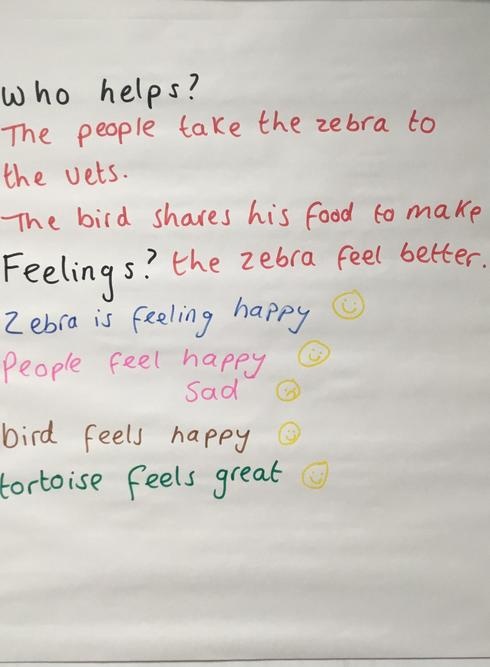 Who helps?
The people take the zebra to
the vets.
The bird shares his food to make
Feelings? the zebra feel better.
Zebra is feeling happy
People feel happy
Sad
bird feels happy
tortoise feels great